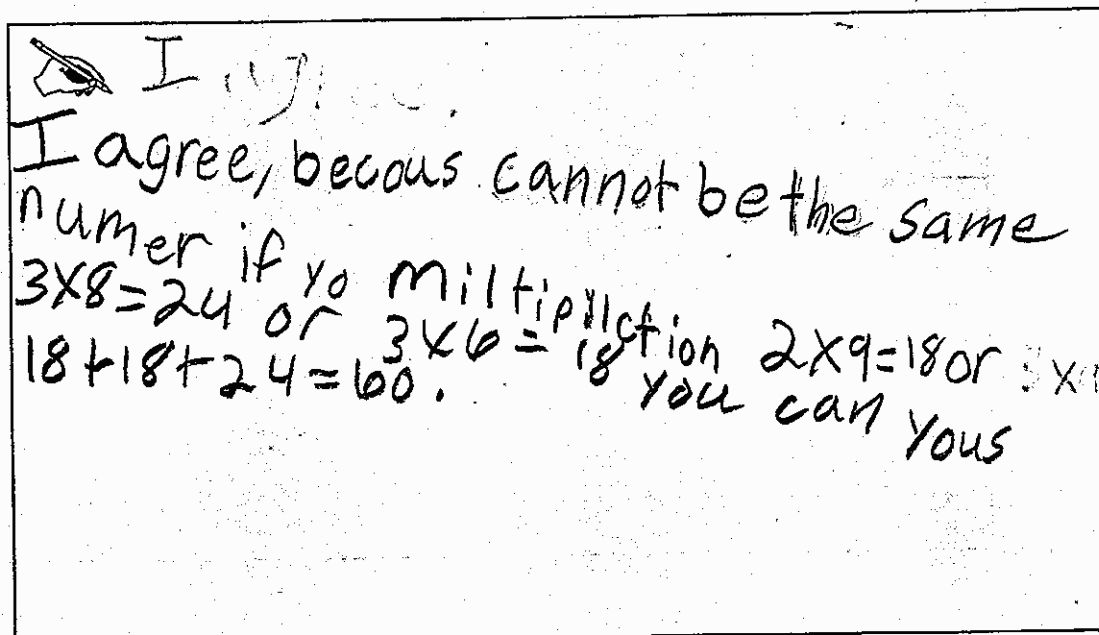 I
I agree, becous cannot be the same
numer if yo miltipliction 2x9=18 or
3x8=24 or 3x6=18 you can yous
18+18+24=60.